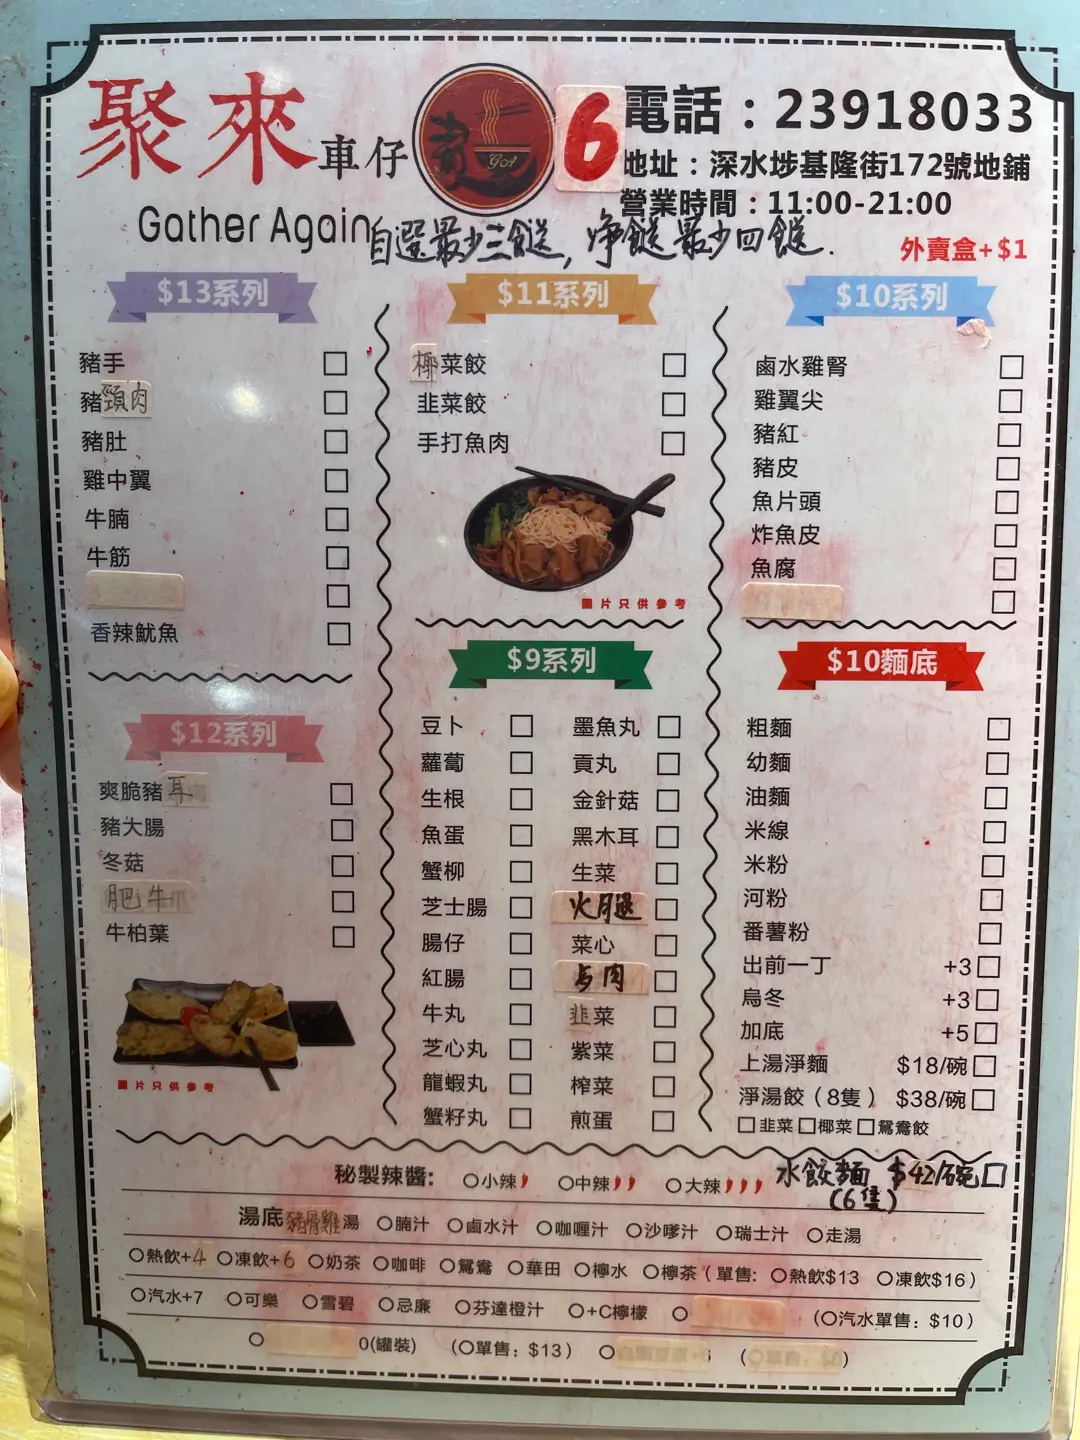 聚來車仔
Gather Again
6
電話：23918033
地址：深水埗基隆街172號地鋪
營業時間：11:00-21:00
自選最少三餸，净餸最少四餸.
外賣盒+$1
$13系列
豬手
豬頸肉
豬肚
雞中翼
牛腩
牛筋
香辣魷魚
$12系列
爽脆豬耳
豬大腸
冬菇
肥牛
牛柏葉
圖片只供參考
$11系列
椰菜餃
韭菜餃
手打魚肉
圖片只供參考
$9系列
豆卜 墨魚丸
蘿蔔 貢丸
生根 金針菇
魚蛋 黑木耳
蟹柳 生菜
芝士腸 火腿
腸仔 菜心
紅腸 肉
牛丸 韭菜
芝心丸 紫菜
龍蝦丸 榨菜
蟹籽丸 煎蛋
$10系列
鹵水雞腎
雞翼尖
豬紅
豬皮
魚片頭
炸魚皮
魚腐
$10麵底
粗麵
幼麵
油麵
米線
米粉
河粉
番薯粉
出前一丁 +3
烏冬 +3
加底 +5
上湯淨麵 $18/碗
淨湯餃（8隻） $38/碗
韭菜 椰菜 鴛鴦餃
水餃麵 $42/碗
(6隻)
秘製辣醬: 小辣 中辣 大辣
湯底 豬骨雞湯 腩汁 鹵水汁 咖喱汁 沙嗲汁 瑞士汁 走湯
熱飲+4 凍飲+6 奶茶 咖啡 鴛鴦 華田 檸水 檸茶（單售: 熱飲$13 凍飲$16）
汽水+7 可樂 雪碧 忌廉 芬達橙汁 +C檸檬 （汽水單售: $10）
0(罐裝) （單售: $13）